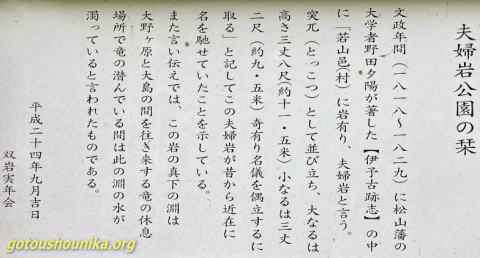 夫婦岩公園の栞
文政年間（一八一八～一八二九）に松山藩の
大学者野田夕陽が著した【伊予古跡志】の中
に「若山邑（村）に岩有り、夫婦岩と言う。
突兀（とっこつ）として並び立ち、大なるは
高さ三丈八尺（約十一・五米）小なるは三丈
二尺（約九・五米）奇有り名儀を偶立するに
取る」と記してこの夫婦岩が昔から近在に
名を馳せていたことを示している。
また言い伝えでは、この岩の真下の淵は
大野ヶ原と大島の間を往き来する竜の休息
場所で竜の潜んでいる間は此の淵の水が
濁っていると言われたものである。
平成二十四年九月吉日
双岩実年会
gotoushounika.org